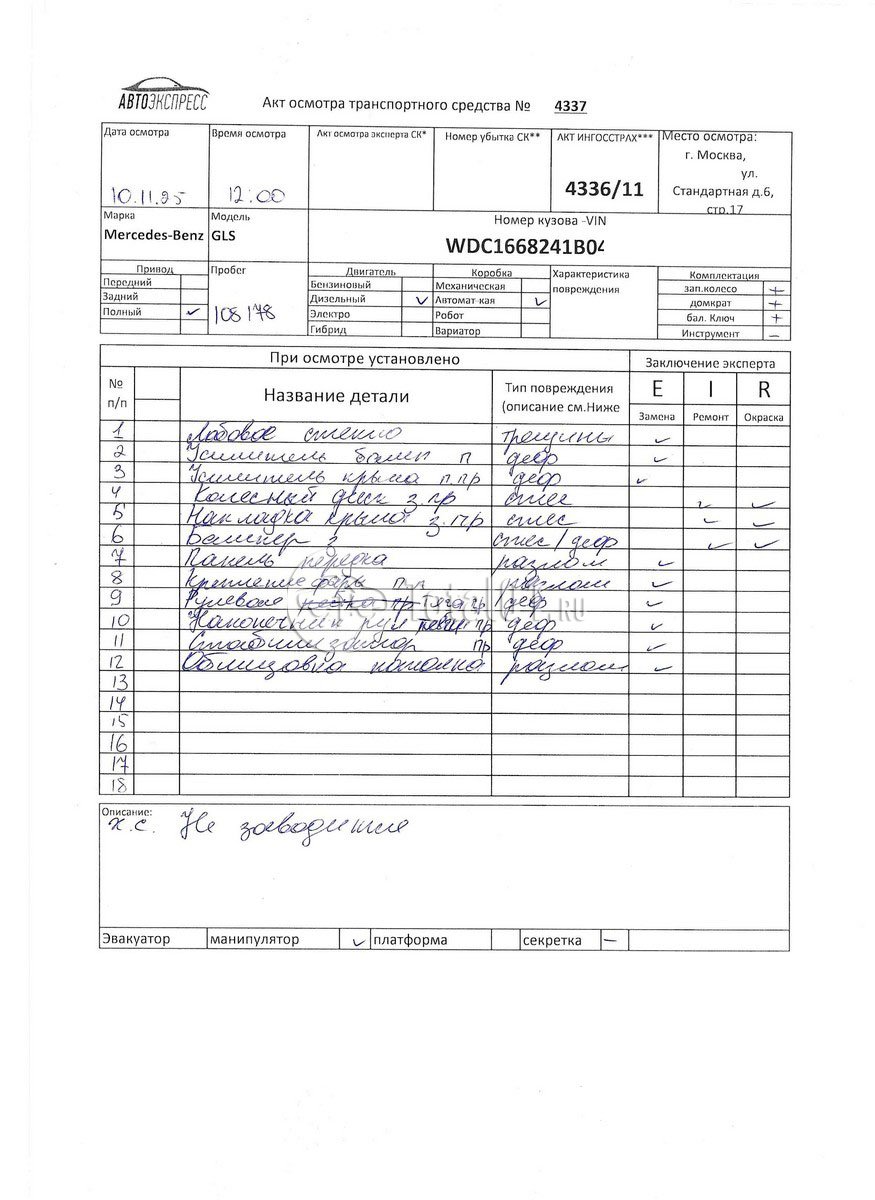 АВТОЭКСПРЕСС
Акт осмотра транспортного средства № 4337
Дата осмотра Время осмотра Акт осмотра эксперта СК* Номер убытка СК** АКТ ИНГОССТРАХ*** Место осмотра:
г. Москва,
ул.
10.11.25 12:00 4336/11 Стандартная д.6,
стр.17
Марка Модель Номер кузова -VIN
Mercedes-Benz GLS WDC1668241B04
Привод Пробег Двигатель Коробка Характеристика Комплектация
Передний Бензиновый Механическая повреждения зап.колесо +
Задний Дизельный ✓ Автомат-кая ✓ домкрат +
Полный ✓ 108178 Электро Робот бал. Ключ +
Гибрид Вариатор Инструмент –
При осмотре установлено Заключение эксперта
№ п/п Название детали Тип повреждения E I R
(описание см.Ниже Замена Ремонт Окраска
1 Лобовое стекло трещины ✓
2 Усилитель балки п деф ✓
3 Усилитель крыла п.пр деф ✓
4 Колесный диск з.пр стес ✓ ✓
5 Накладка крыла з.пр стес ✓ ✓
6 Бампер з стес/деф ✓ ✓
7 Панель передка разлом ✓
8 Крепление фары п.п разлом ✓
9 Рулевая тяга пр деф ✓
10 Наконечник рул пр деф ✓
11 Стабилизатор пр деф ✓
12 Облицовка потолка разлом ✓
13
14
15
16
17
18
Описание:
х.с. Не заводится
Эвакуатор манипулятор ✓ платформа секретка –